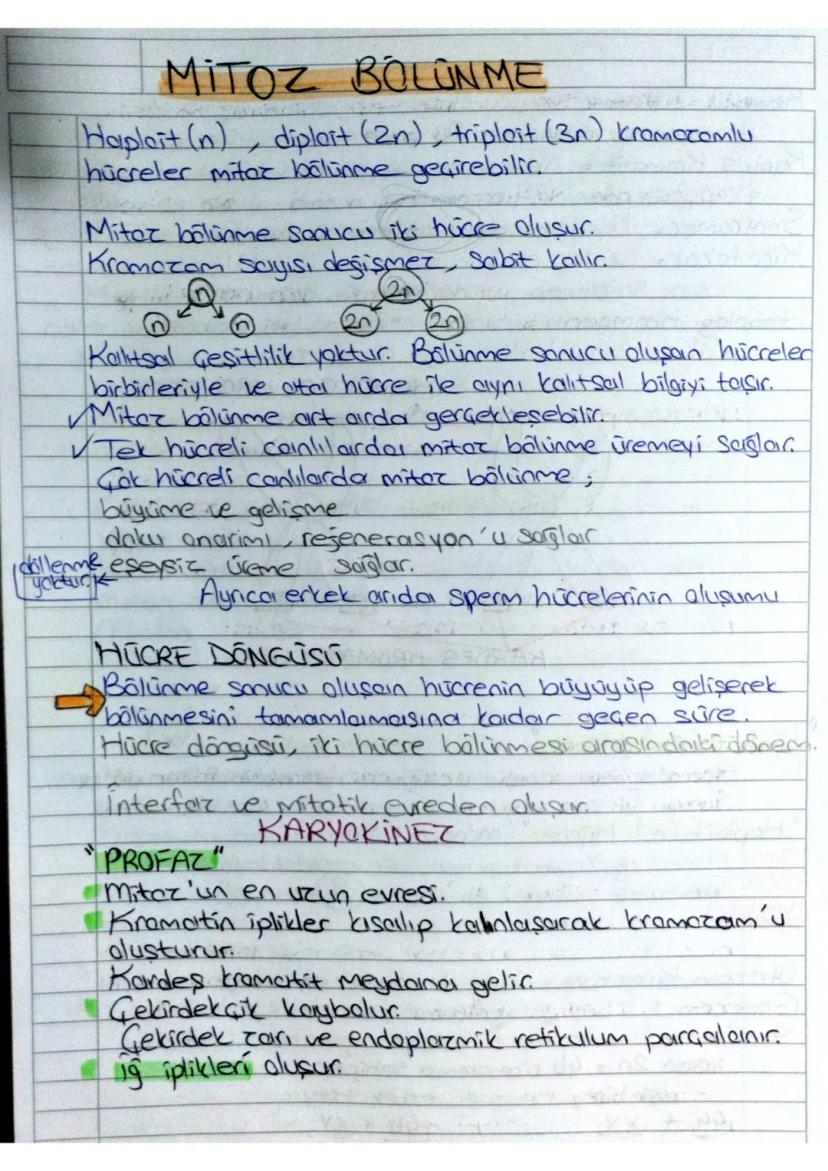 MİTOZ BÖLÜNME
Haploit (n), diploit (2n), triploit (3n) kromozomlu
hücreler mitoz bölünme geçirebilir.
Mitoz bölünme sonucu iki hücre oluşur.
Kromozom sayısı değişmez, sabit kalır.
n 2n
n n 2n 2n
Kalıtsal çeşitlilik yoktur. Bölünme sonucu oluşan hücreler
birbirleriyle ve ata hücre ile aynı kalıtsal bilgiyi taşır.
✓Mitoz bölünme art arda gerçekleşebilir.
✓Tek hücreli canlılarda mitoz bölünme üremeyi sağlar.
Çok hücreli canlılarda mitoz bölünme;
büyüme ve gelişme
doku onarımı, rejenerasyon'u sağlar
döllenme yoktur. ← eşeysiz üreme sağlar.
Ayrıca erkek arıda sperm hücrelerinin oluşumu
HÜCRE DÖNGÜSÜ
➡ Bölünme sonucu oluşan hücrenin büyüyüp gelişerek
bölünmesini tamamlamasına kadar geçen süre.
Hücre döngüsü, iki hücre bölünmesi arasındaki dönem.
İnterfaz ve mitotik evreden oluşur.
KARYOKİNEZ
"PROFAZ"
Mitoz'un en uzun evresi.
Kromatin iplikler kısalıp kalınlaşarak kromozom'u
oluşturur.
Kardeş kromatit meydana gelir.
Çekirdekçik kaybolur.
Çekirdek zarı ve endoplazmik retikulum parçalanır.
iğ iplikleri oluşur.